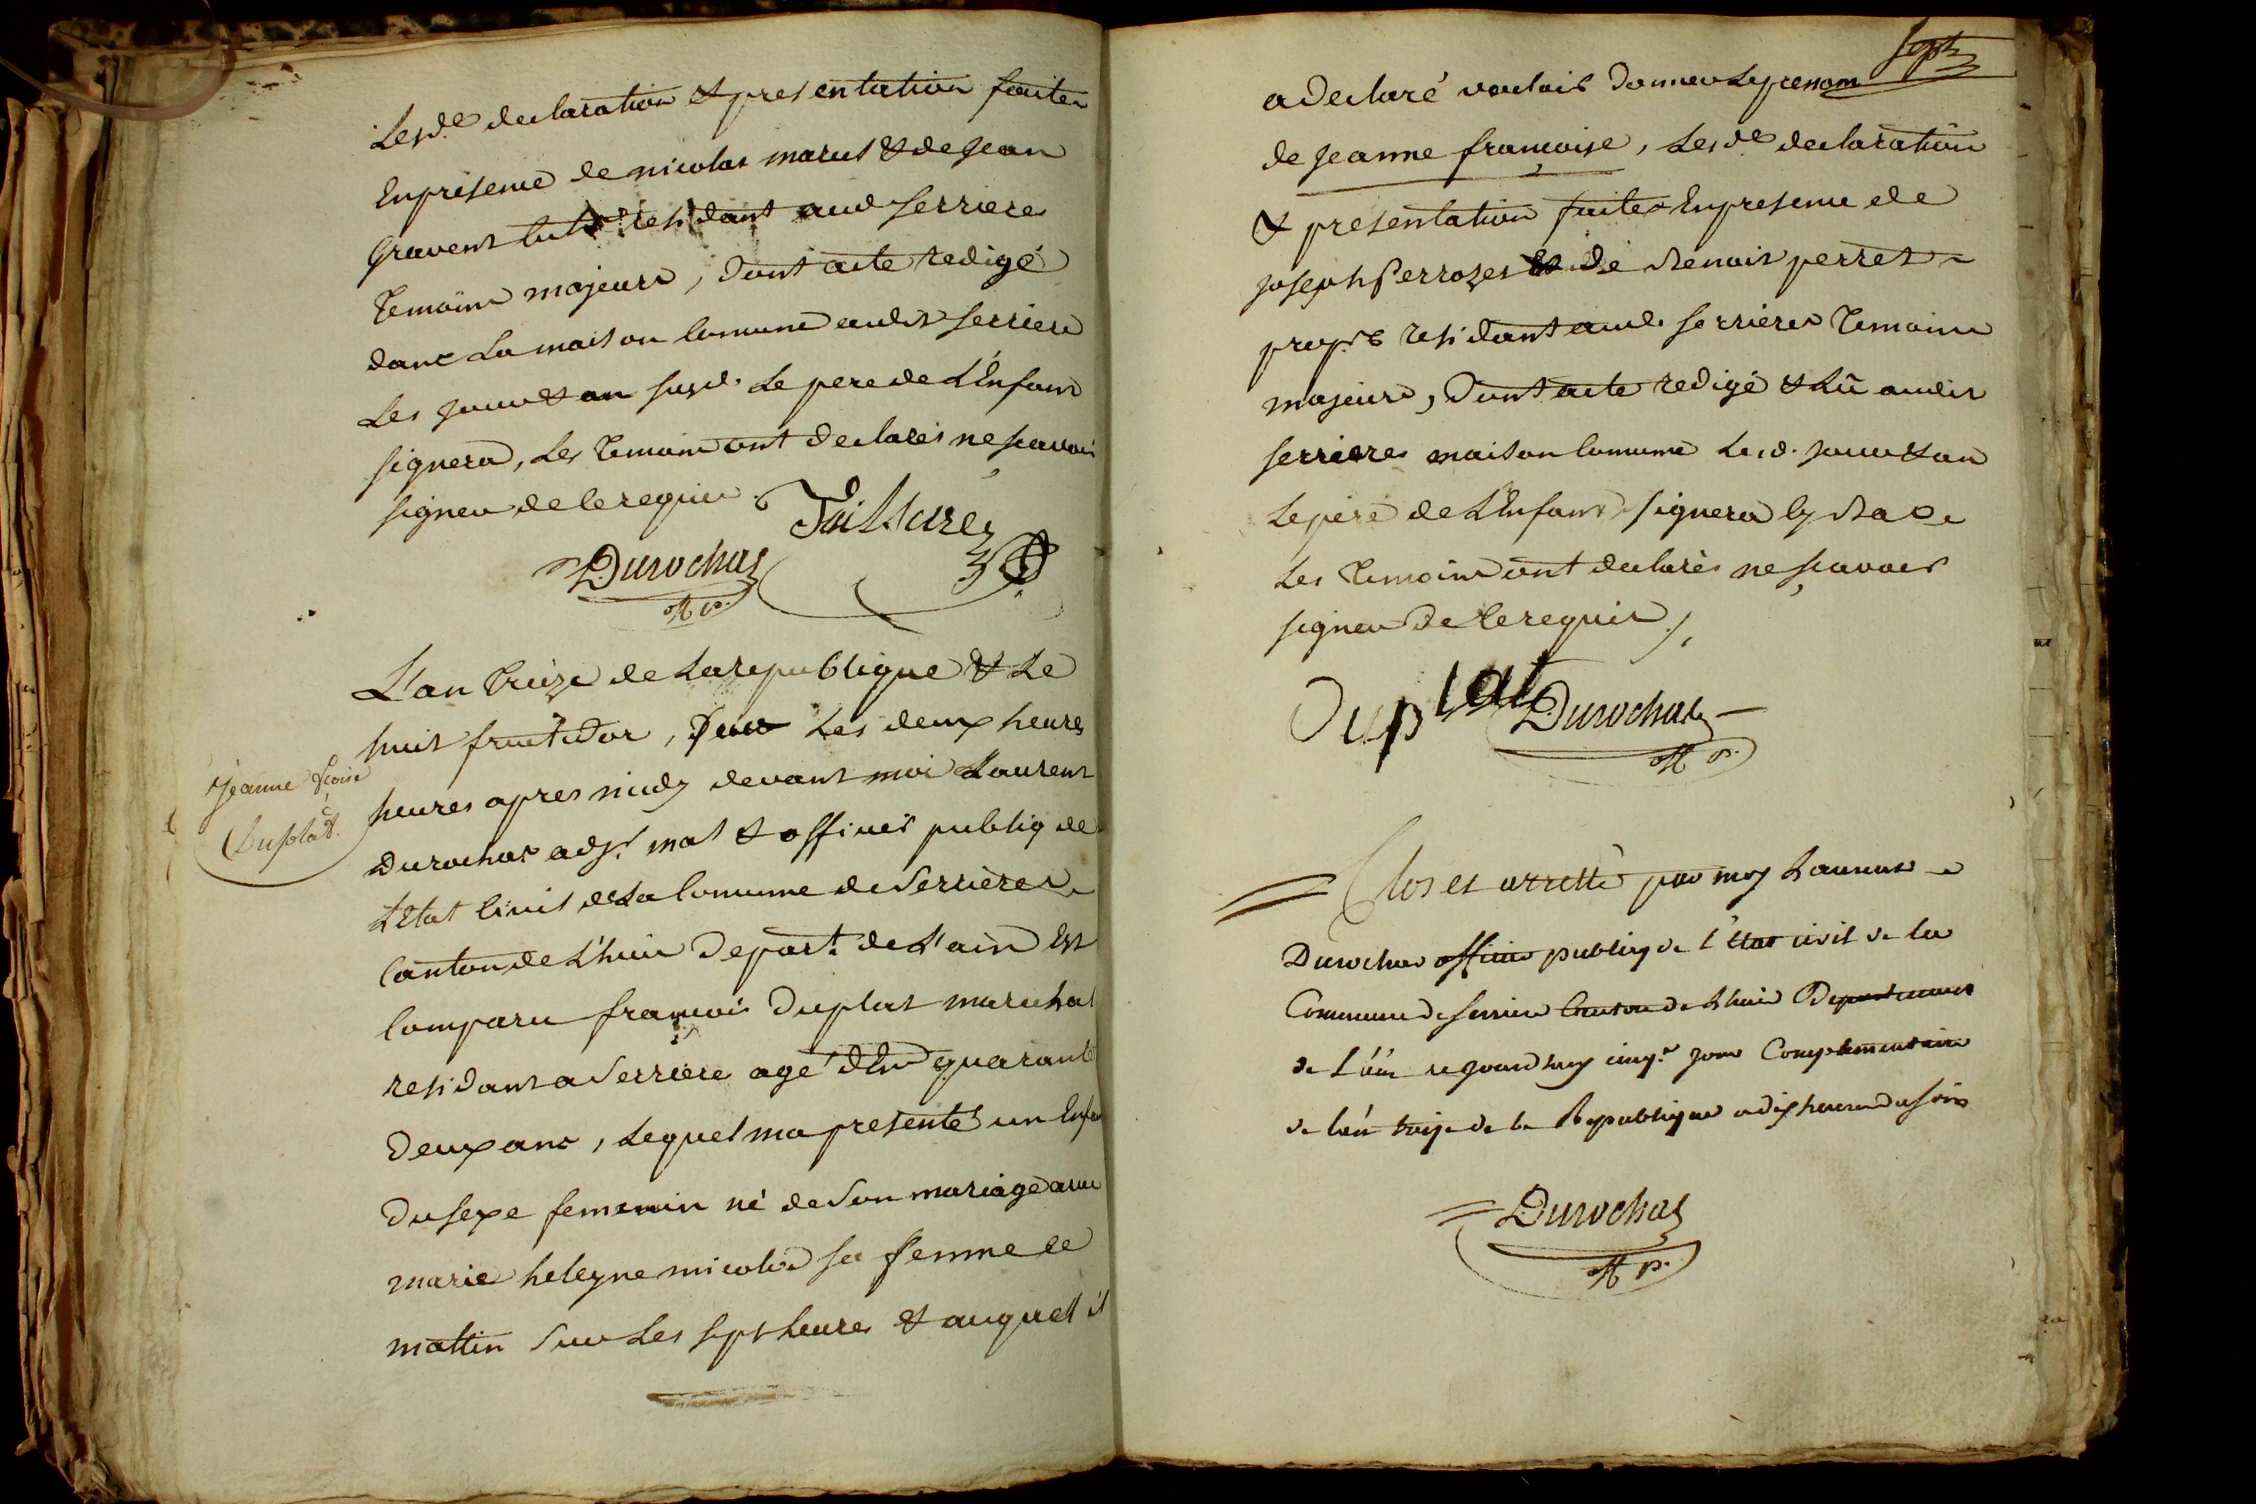 Lesd.e declaration & presentation faites
En presence de nicolas marul & de jean
gravent residant aud serrieres
Temoins majeurs, Dont acte redigé
dans La maison Comune audit serrieres
Les jour & an susd. Le pere de L'Enfant
signera, Les Temoins ont declarés ne scavoir
signer de ce requis.
Duvochas
Off. p.
Jeanne fcoise
Duplat.
L'an Treize de La republique & Le
huit fructidor, sur Les deux heures
heures apres midy devant moi Laurent
Durochas adj.t mal & officier publiq de
L'Etat Civil de La Comune de Serrieres
Canton de L'huis Depart.t de L'ain Est
Comparu françois Duplat marechal
residant a Serriere agé d'En quarante
Deux ans, Lequel ma presenté un Enfant
Du sexe femenin né de Son mariage avec
marie heleyne micolod sa femme ce
mattin Sur Les sept heures & auquel il
Sept
a declaré vouloir Donner Le prenom
de jeanne françoise, Lesd.e declaration
& presentation faites En presence de
joseph Perrozet & de Benoit perret
prop.res residant aud. serrieres Temoins
majeurs, Dont acte redigé & Lû audit
serrieres maison Comune Lesd. jour & an
Le pere de L'Enfant signera
Les Temoins ont declarés ne scavoir
signer de ce requis.
Duplat
Durochas
Off. p.
Clos et arretté par moy Laurent
Durochas officier publiq de l'Etat civil de la
Commune de serriere Canton de Lhuis Departement
de L'ain ce jourdhuy cinq.e jour Complementaire
de l'an treize de la Republique a dix heures du soir
Durochas
Off. p.